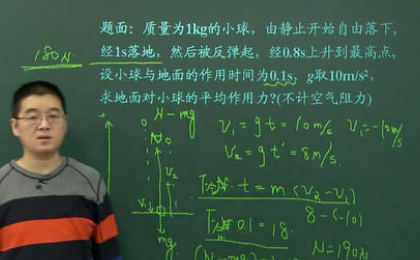 题面：质量为1kg的小球，由静止开始自由落下，
经1s落地，然后被反弹起，经0.8s上升到最高点，
设小球与地面的作用时间为0.1s，g取10m/s²，
求地面对小球的平均作用力?(不计空气阻力)
180N
N-mg
V₁=gt=10m/s V₁=-10m/s
V₂=gt'=8m/s
F合·t=m(V₂-V₁)
8-(-10)
F合·0.1=18
N=190N
V₂
V₁
mg